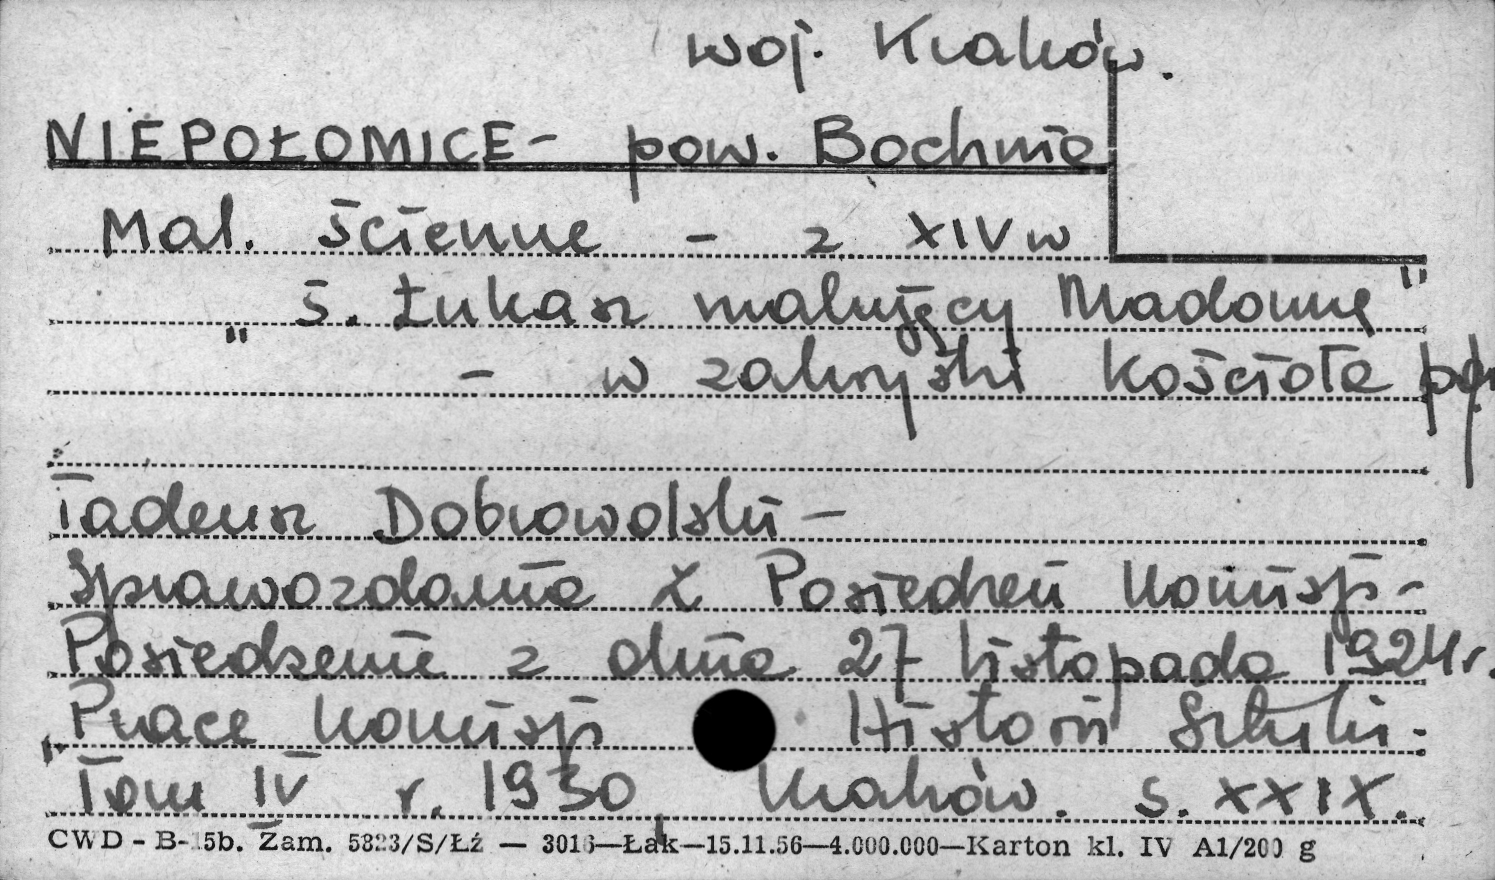 woj. Kraków.
NIEPOŁOMICE - pow. Bochnia
Mal. ścienne - z XIV w
„ś. Łukasz malujący Madonnę"
- w zakrystii kościoła
Tadeusz Dobrowolski -
Sprawozdania z Posiedzeń Komisji -
Posiedzenie z dnia 27 listopada 1924 r.
„Prace Komisji Historii Sztuki.
Tom IV r. 1930, Kraków. s. XXIX.
CWD - B-15b. Zam. 5823/S/Łź — 3016—Łak—15.11.56—4.000.000—Karton kl. IV A1/200 g